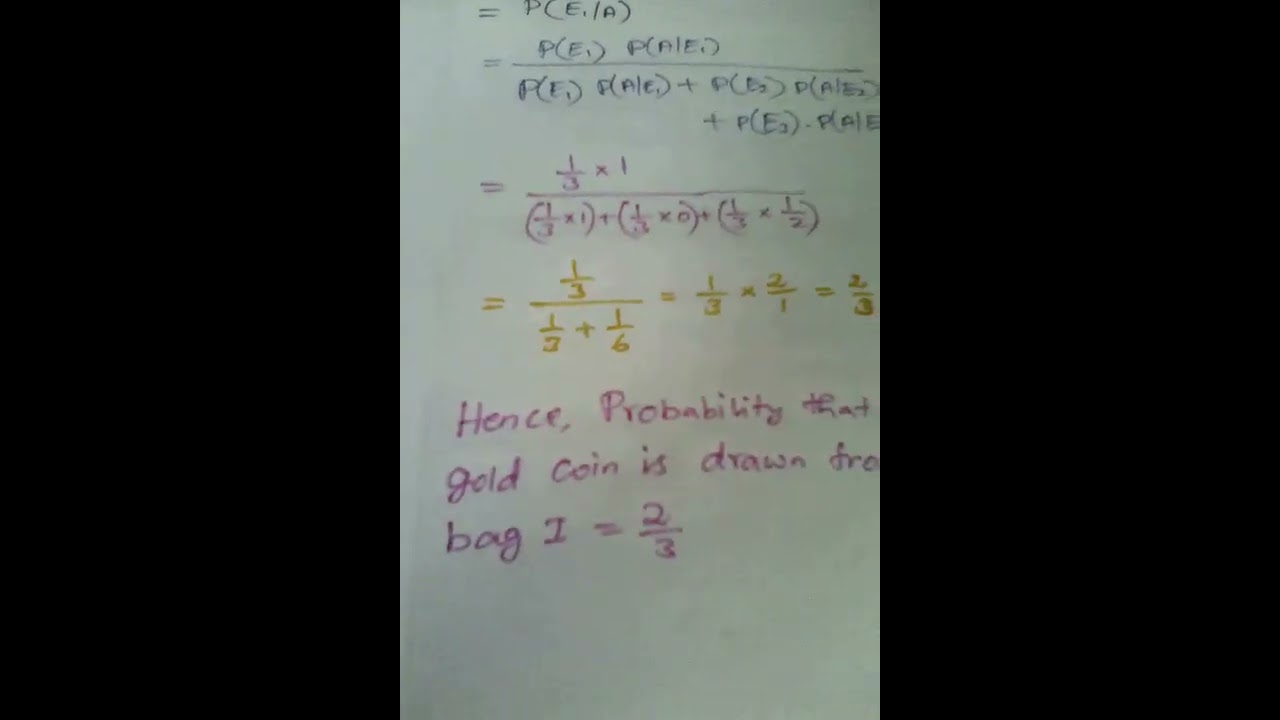 = P(E₁/A)
= P(E₁) P(A|E₁) / P(E₁) P(A|E₁) + P(E₂) P(A|E₂)
+ P(E₃) . P(A|E
= 1/3 × 1 / (1/3 × 1) + (1/3 × 0) + (1/3 × 1/2)
= 1/3 / 1/3 + 1/6 = 1/3 × 2/1 = 2/3
Hence, Probability that
gold coin is drawn fro
bag I = 2/3